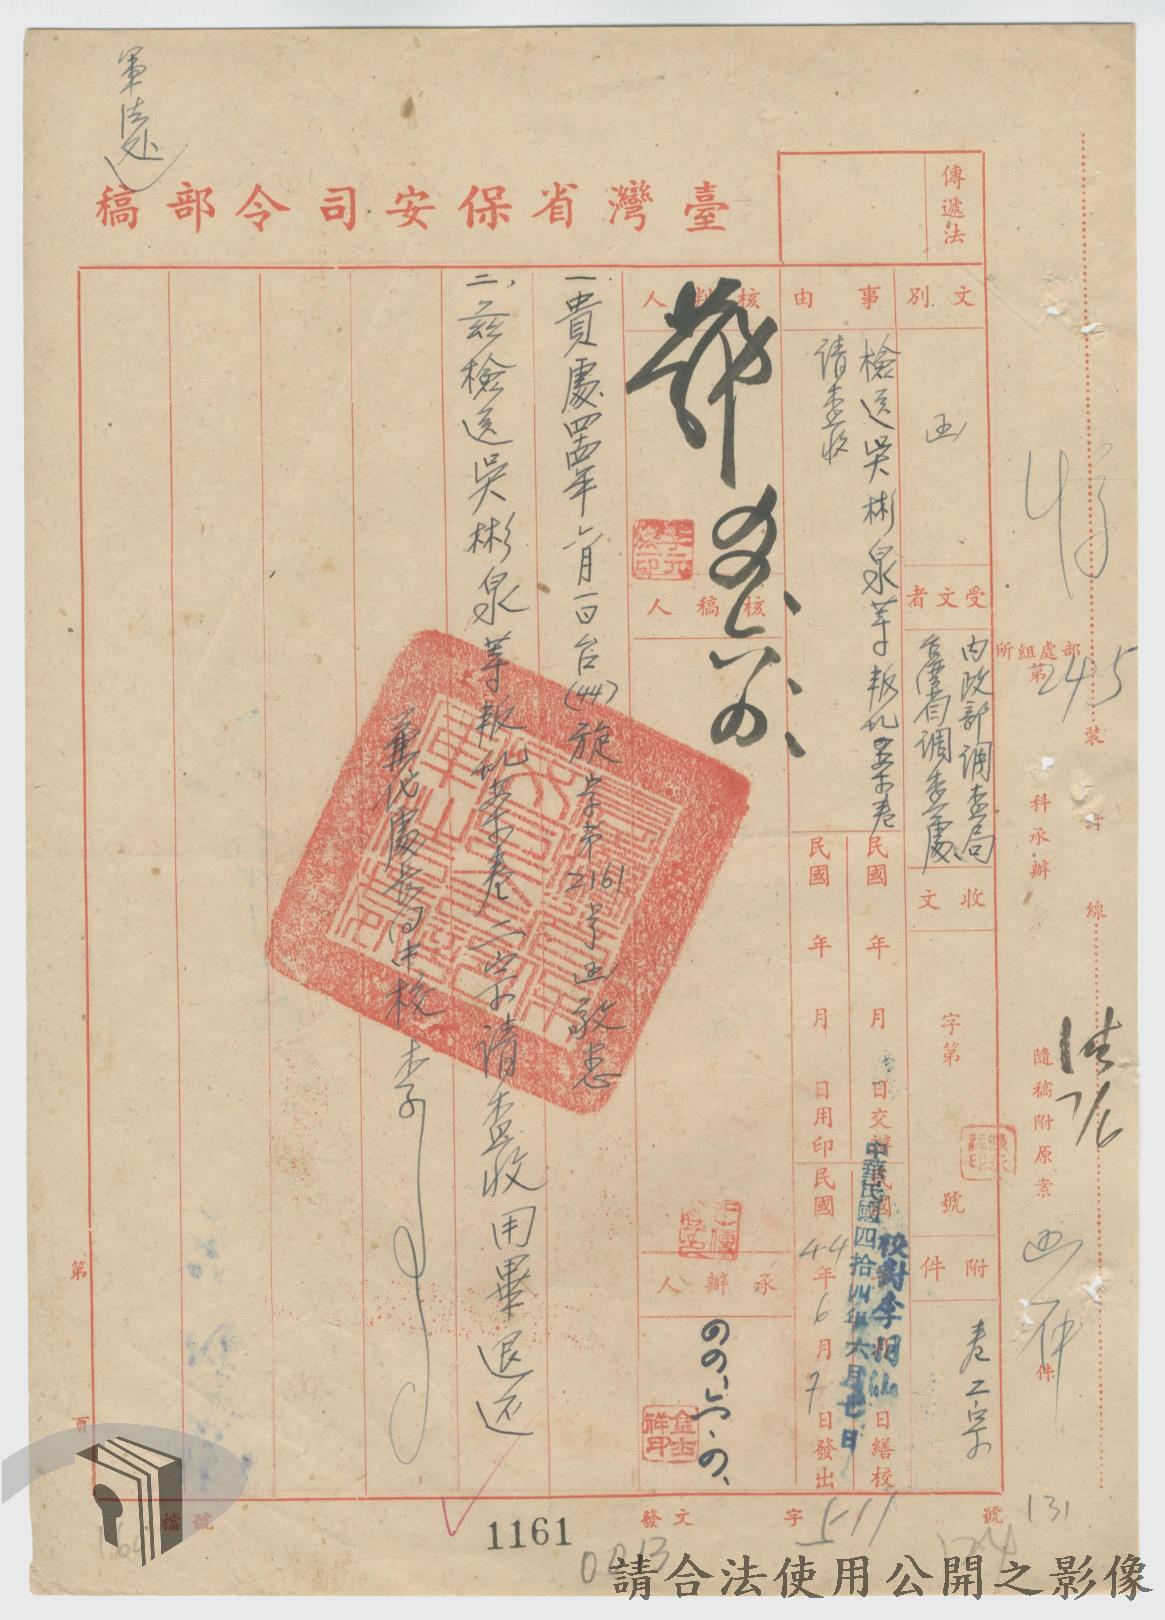 軍法處
臺灣省保安司令部稿
傳遞法
文別
函
受文者
內政部調查局
台灣省調查處
收文
字第
號
附件
卷二宗
事由
檢送吳彬泉等叛亂案卷
請查收
民國 年 月 日交辦
民國 年 月 日用印
民國 年 月 日繕校
民國44年6月7日發出
中華民國四拾四年六月七日
校對李相仙
核判人
核稿人
承辦人
一、貴處四四年六月一日台(44)旋字第2161号函敬悉
二、茲檢送吳彬泉等叛亂案卷二宗請查收用畢退还
兼代處長周中校李
部處組所
第
245
科承辦
隨稿附原案
件
裝
訂
線
法
7/6
第
頁
檔號
1161
發文
字
511
號
131
0013
請合法使用公開之影像